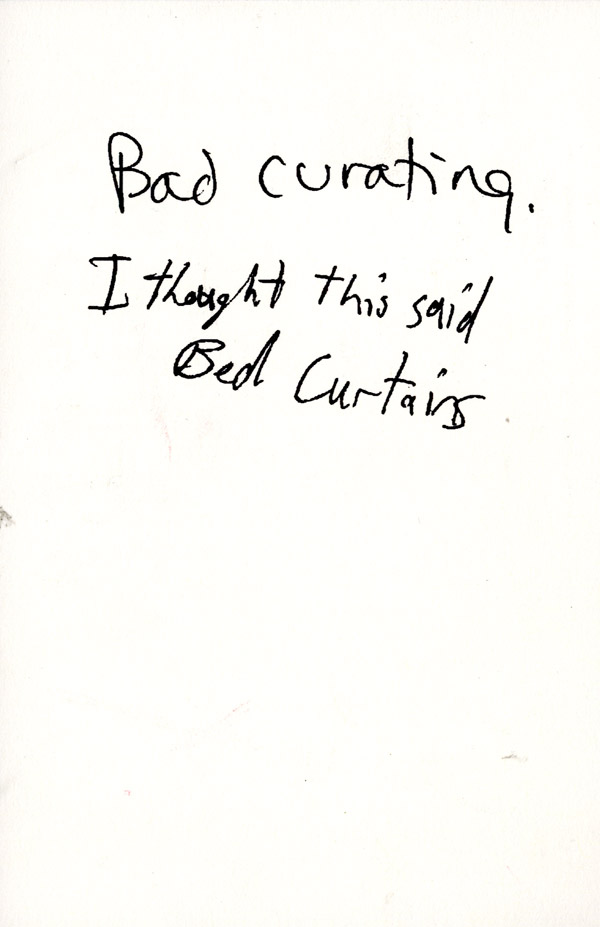 Bad curating.
I thought this said
Bed Curtains